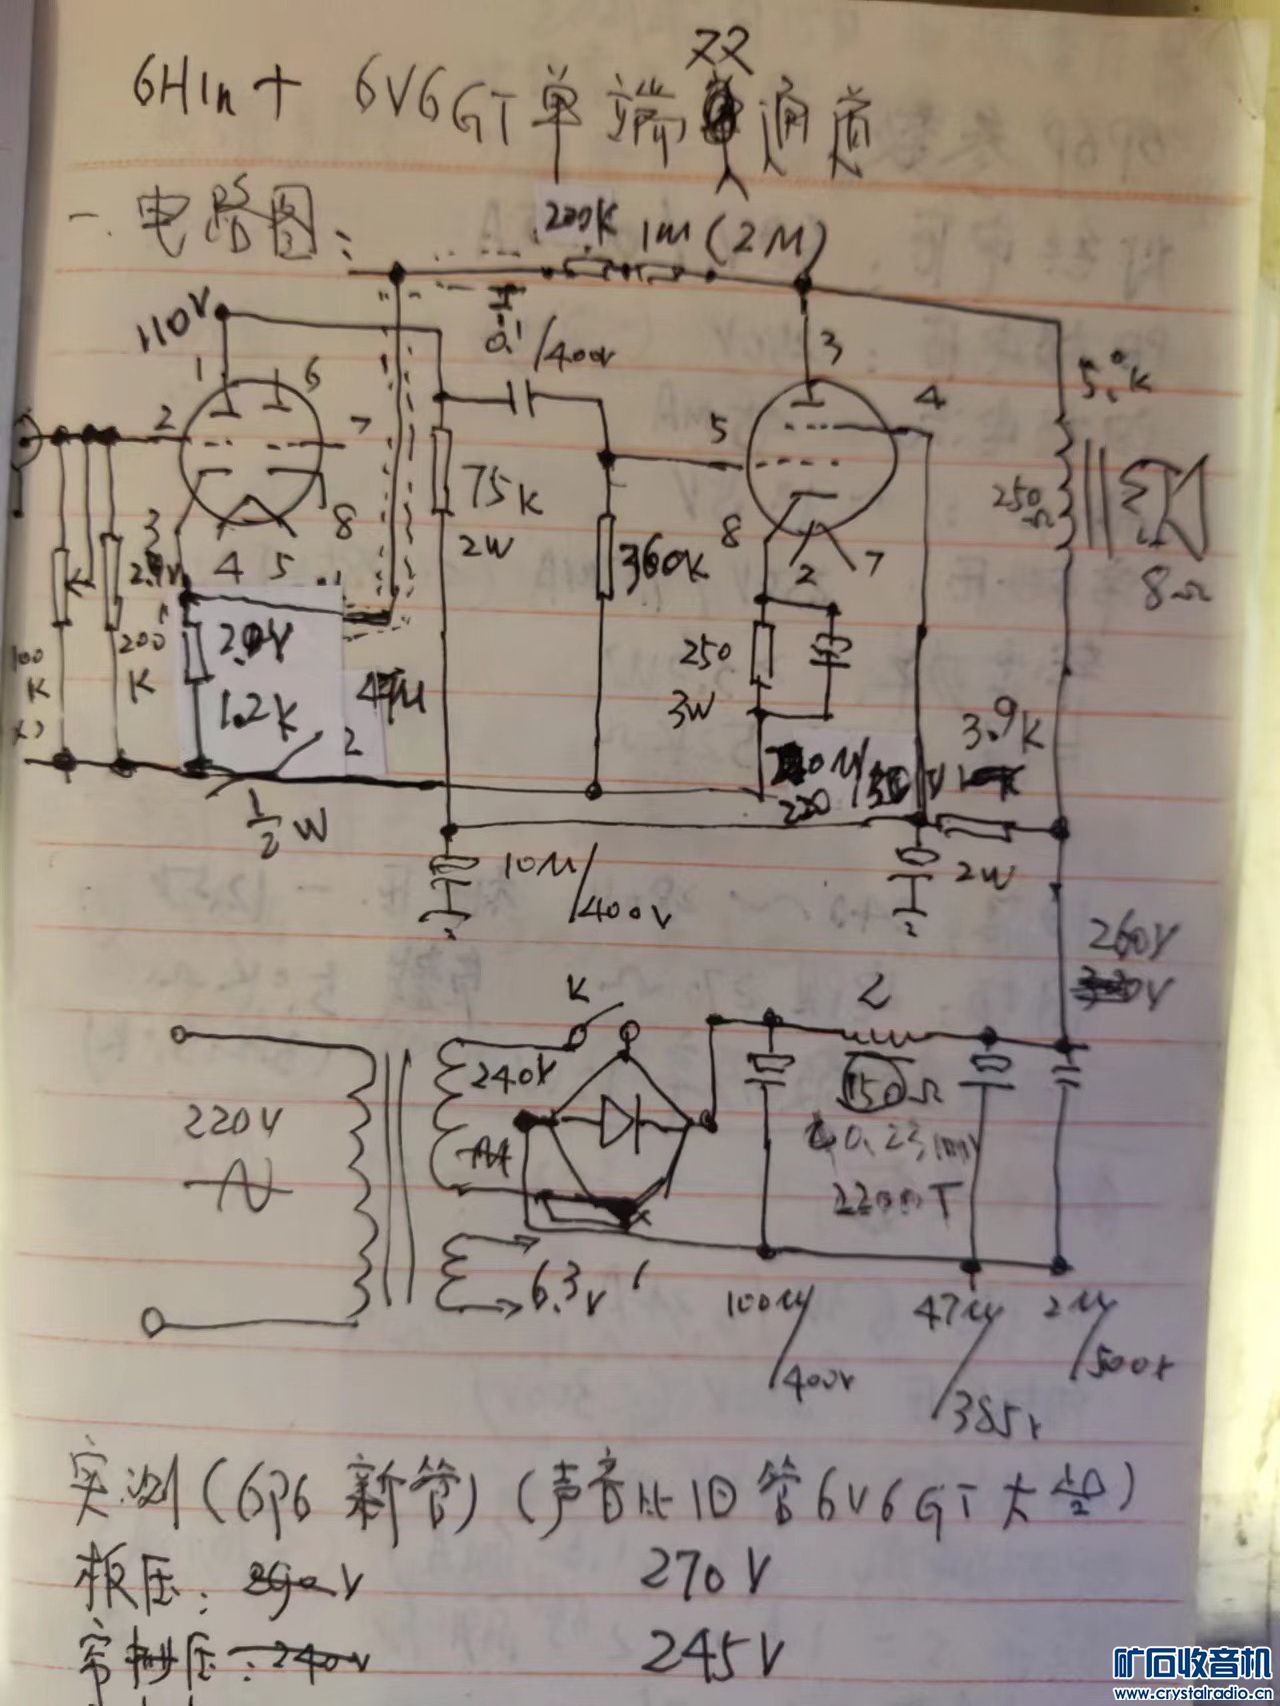 6H1n + 6V6GT单端双通道
一.电路图:
200K 1M (2M)
110V
0.1/400V
1 6
2 7
3 8
4 5
75K
2W
360K
3
4
5
8 2 7
5.0K
250Ω
8Ω
100K
200K
2.0V
1.2K
47μ
1/2 W
250
3W
220
3.9K
2W
10μ/400V
260V
K
240V
220V
6.3V
L
150Ω
0.23mm
2200T
100μ/400V
47μ/385V
2μ/500V
实测(6P6新管)(声音比旧管6V6GT大些)
板压: 290V 270V
帘栅压: 240V 245V
矿石收音机
www.crystalradio.cn